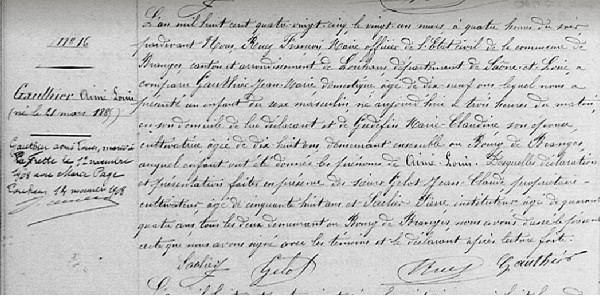 N° 16
Gauthier Aimé Louis
(né le 21 mars 1885)
Gauthier Aimé Louis, marié à
la frette le 12 novembre
1908 avec Marie Page
Louhans 14 novembre 1908
L'an mil huit cent quatre vingt cinq, le vingt un mars à quatre heures du soir
pardevant Nous, Rucy François Marie officier de l'Etat civil de la commune de
Branges, canton et arrondissement de Louhans, département de Saône-et-Loire, a
comparu Gauthier Jean-Marie domestique âgé de dix neuf ans lequel nous a
présenté un enfant du sexe masculin né aujourd'hui à trois heures du matin,
en son domicile de lui déclarant et de Gudefin Marie-Claudine son épouse,
cultivatrice âgée de dix huit ans demeurant ensemble au Bourg de Branges,
auquel enfant ont été donnés les prénoms de Aimé Louis. Lesquelles déclaration
et présentation faites en présence des sieurs Gelot Jean-Claude propriétaire
cultivateur âgé de cinquante huit ans et Saclier Pierre instituteur âgé de quarante
quatre ans tous les deux demeurant au Bourg de Branges, nous avons dressé le présent
acte que nous avons signé avec les témoins et le déclarant après lecture faite.
Saclier Gelot Rucy Gauthier